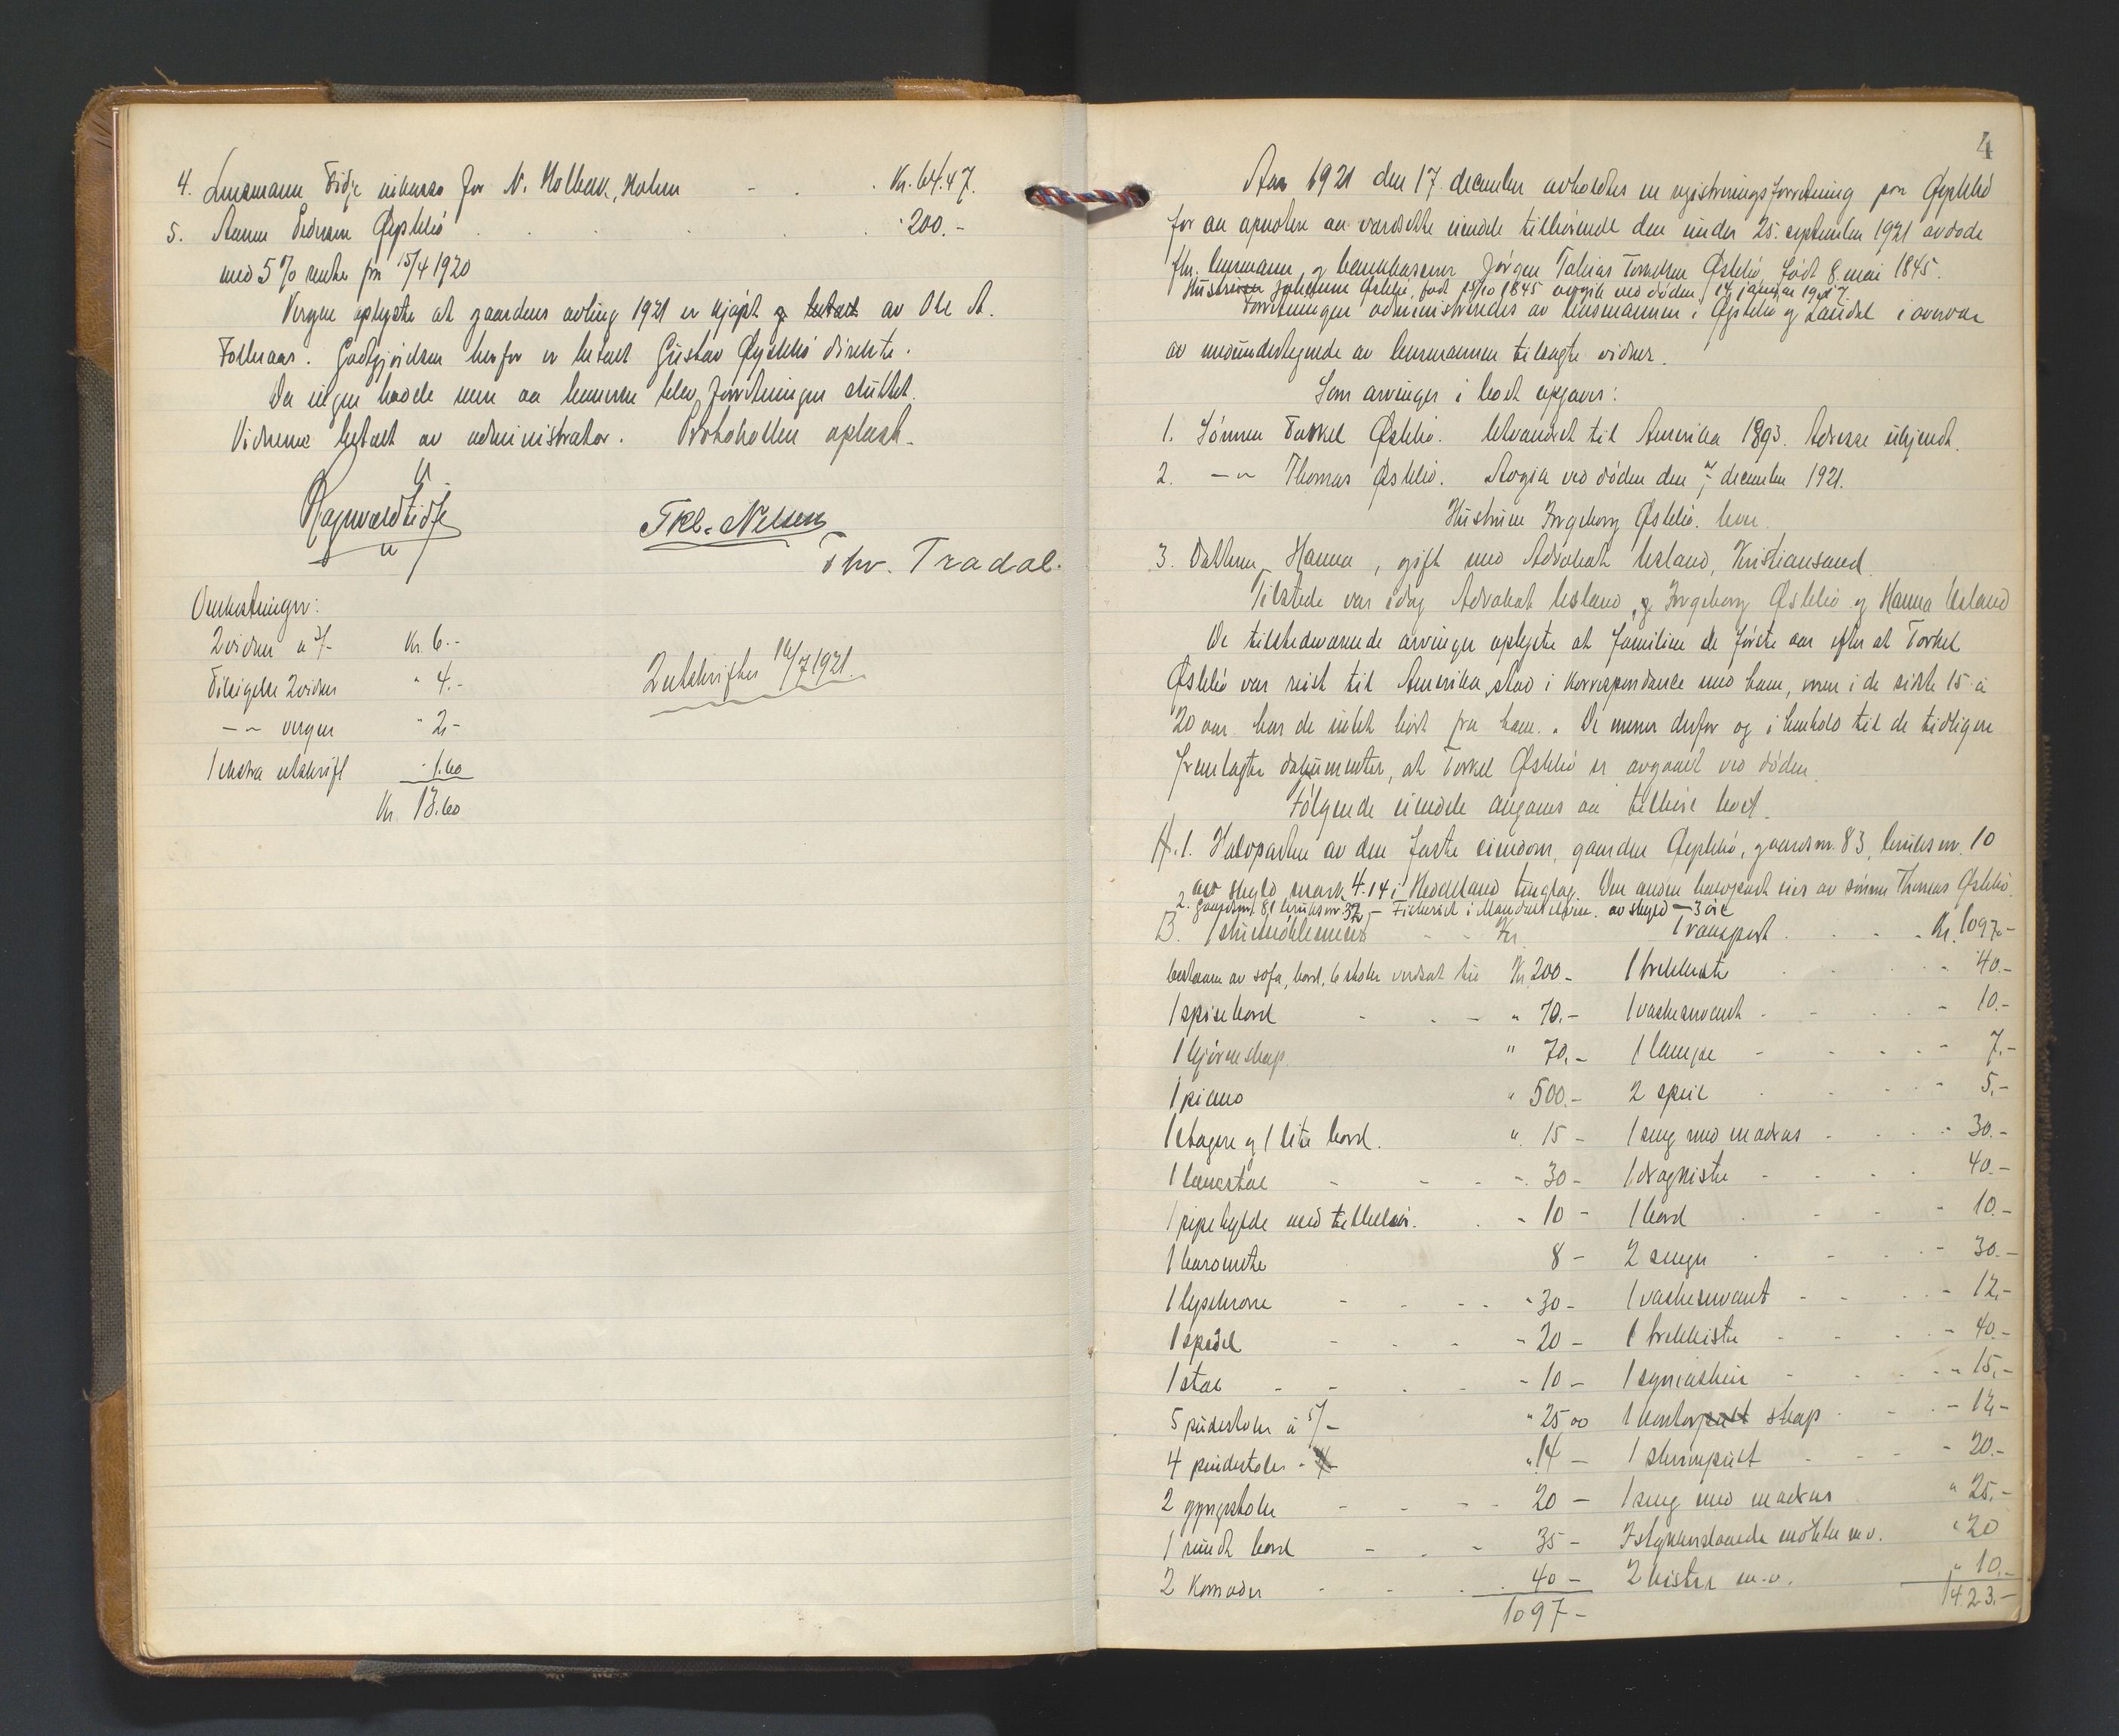 4. Lensmann Tidje inkasso for N. Holbæk, Holum - . . Kr. 64.47.
5. Aanen Pedersen Øyslebø . . . . . . " 200.-
med 5 % rente fra 15/4 1920
Vergen oplyste at gaardens avling 1921 er kjøpt og betalt av Ole A.
Folleraas. Godtgjørelsen herfor er betalt Gustav Øyslebø direkte.
Da ingen havde mere aa bemerke blev forretningen sluttet.
Vidnerne betalt av administrator. Protokollen oplæst.
Ragnvald Tidje
Tkl. Nilsen
Thv. Tradal.
Omkostninger:
2 vidner a 3/- Kr. 6.-
Tilsigelse 2 vidner " 4.-
-"- vergen " 2.-
1 ekstra utskrift " 1.60
Kr. 13.60
2 utskrifter 16/7 1921.
4
Aar 1921 den 17. december avholdtes en registreringsforretning paa Øyslebø
for aa opnotere aa værdsette eiendele tilhørende den under 25. september 1921 avdøde
fhv. lensmann og bankkasserer Jørgen Tobias Torkelsen Øslebø, født 8. mai 1845.
Hustruen Øslebø, født 15/10 1845 avgik ved døden 14 januar 1917.
Forretningen administreredes av lensmannen i Øyslebø og Laudal i overvær
av medundertegnede av lensmannen tilsagte vidner.
Som arvinger i boet opgaves:
1. Sønnen Torkel Øslebø. Utvandret til Amerika 1893. Adresse ukjendt.
2. -"- Thomas Øslebø. Avgik ved døden den 7 december 1921.
Hustruen Ingeborg Øslebø. lever.
3. Datteren Hanna, gift med Advokat Usland, Kristiansand.
Tilstede var idag Advokat Usland, og Ingeborg Øslebø og Hanna Usland
De tilstedeværende arvinger oplyste at familien de første aar efter at Torkel
Øslebø var reist til Amerika, stod i korrespondance med ham, men i de siste 15 a
20 aar har de intet hørt fra ham. De mener derfor og i henhold til de tidligere
fremlagte dokumenter, at Torkel Øslebø er avgaaet ved døden.
Følgende eiendele angaves aa tilhøre boet.
A. 1. Halvparten av den faste eiendom, gaarden Øyslebø, gaardsnr. 83, bruksnr. 10
av skyld mark 4.14 i Heddeland tinglag. Den anden halvpart eies av sønnen Thomas Øslebø
2. Gaardsnr. 81 bruksnr 32 - Fiskeriet i Mandalselven. av skyld - 3 øre
B. 1 stuemøblement - - Kr. Transport . . . Kr. 1097.-
bestaaende av sofa, bord, 6 stoler verdsat til Kr. 200 - 1 trekkiste . . . - 40.-
1 spisebord - . - - " 70.- 1 vaskeservant - . . . - 10.-
1 hjørneskap " 70.- 1 lampe - . . . - 7.-
1 piano " 500.- 2 speil . . . - 5.-
1 etagere og 1 lite bord. " 15 - 1 seng med madras - . . - 30.-
1 lænestol - - - - 30 - 1 dragkiste - . . . 40.-
1 pipehylde med tilbehør. . - 10 - 1 bord . . - - 10.-
1 barometer 8 - 2 senger . - . - 30.-
1 lysekrone - - - - 30 - 1 vaskeservant - - . - 12.-
1 speil - . - - 20 - 1 trekkiste - . . - 40.-
1 stol - - . . - 10 - 1 symaskin - . . - 15.-
5 pindestoler a 5/- " 25 00 1 kontorpult skap . - . - 12.-
4 pindestoler - " 14 - 1 skrivepult . - - 20.-
2 gyngestoler - - - - 20 - 1 seng med madras " 25.-
1 rundt bord - . - 35 - 7 stykker møbler m.v. " 20
2 Komoder . - . . 40 - 2 kister m.v. " 10.-
1097 - 1423.-